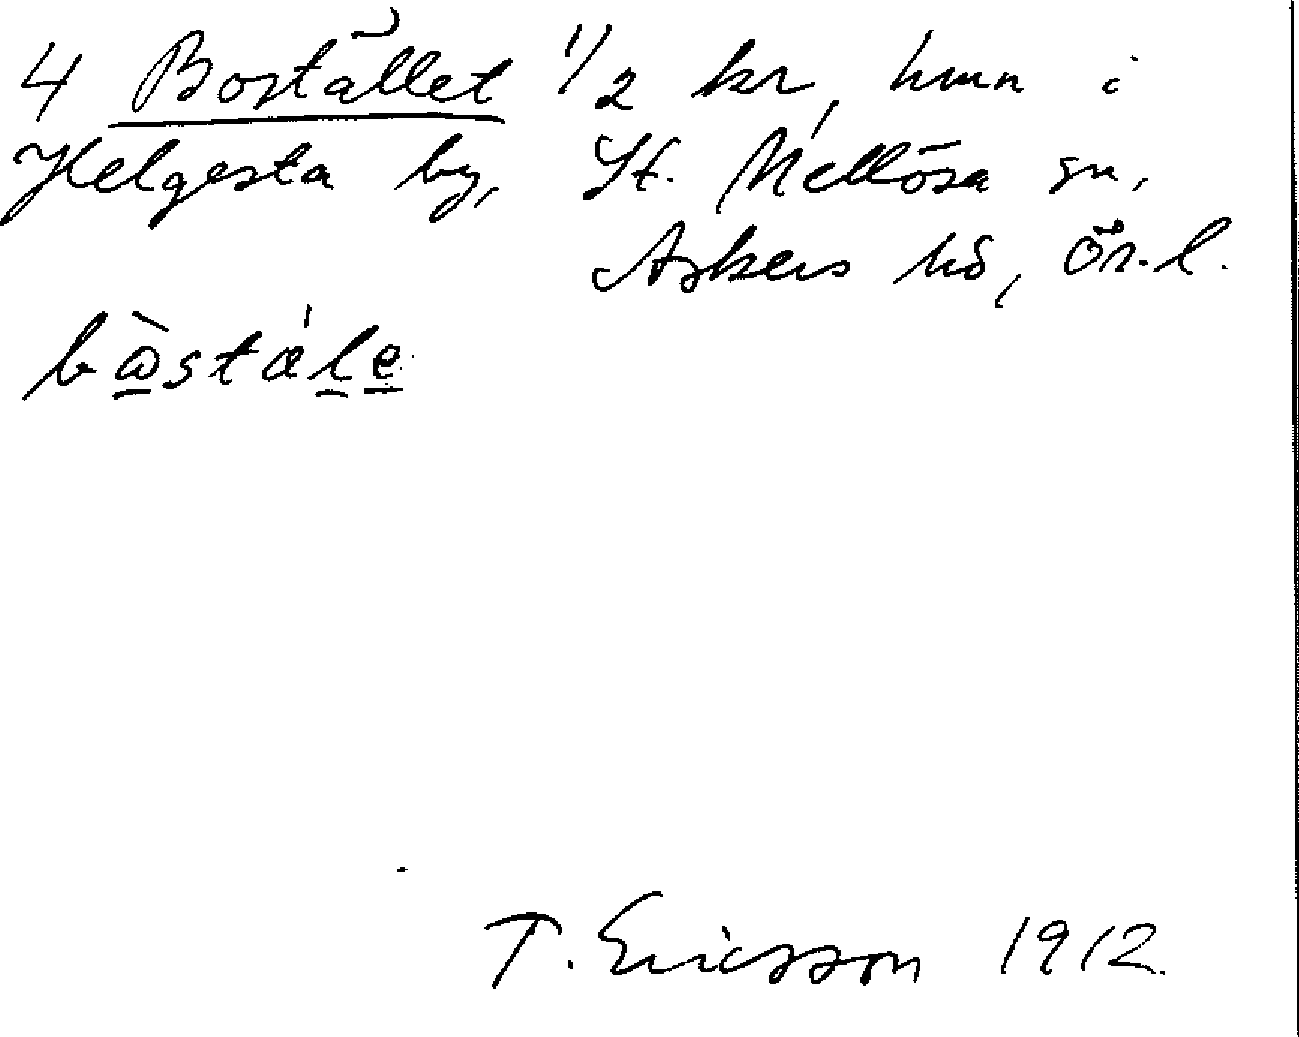 4 Bostället 1/2 kr, hmn i
Helgesta by, St. Mellösa sn,
Askers hd, Ör.l.
bòstæ'le
T. Ericsson 1912.